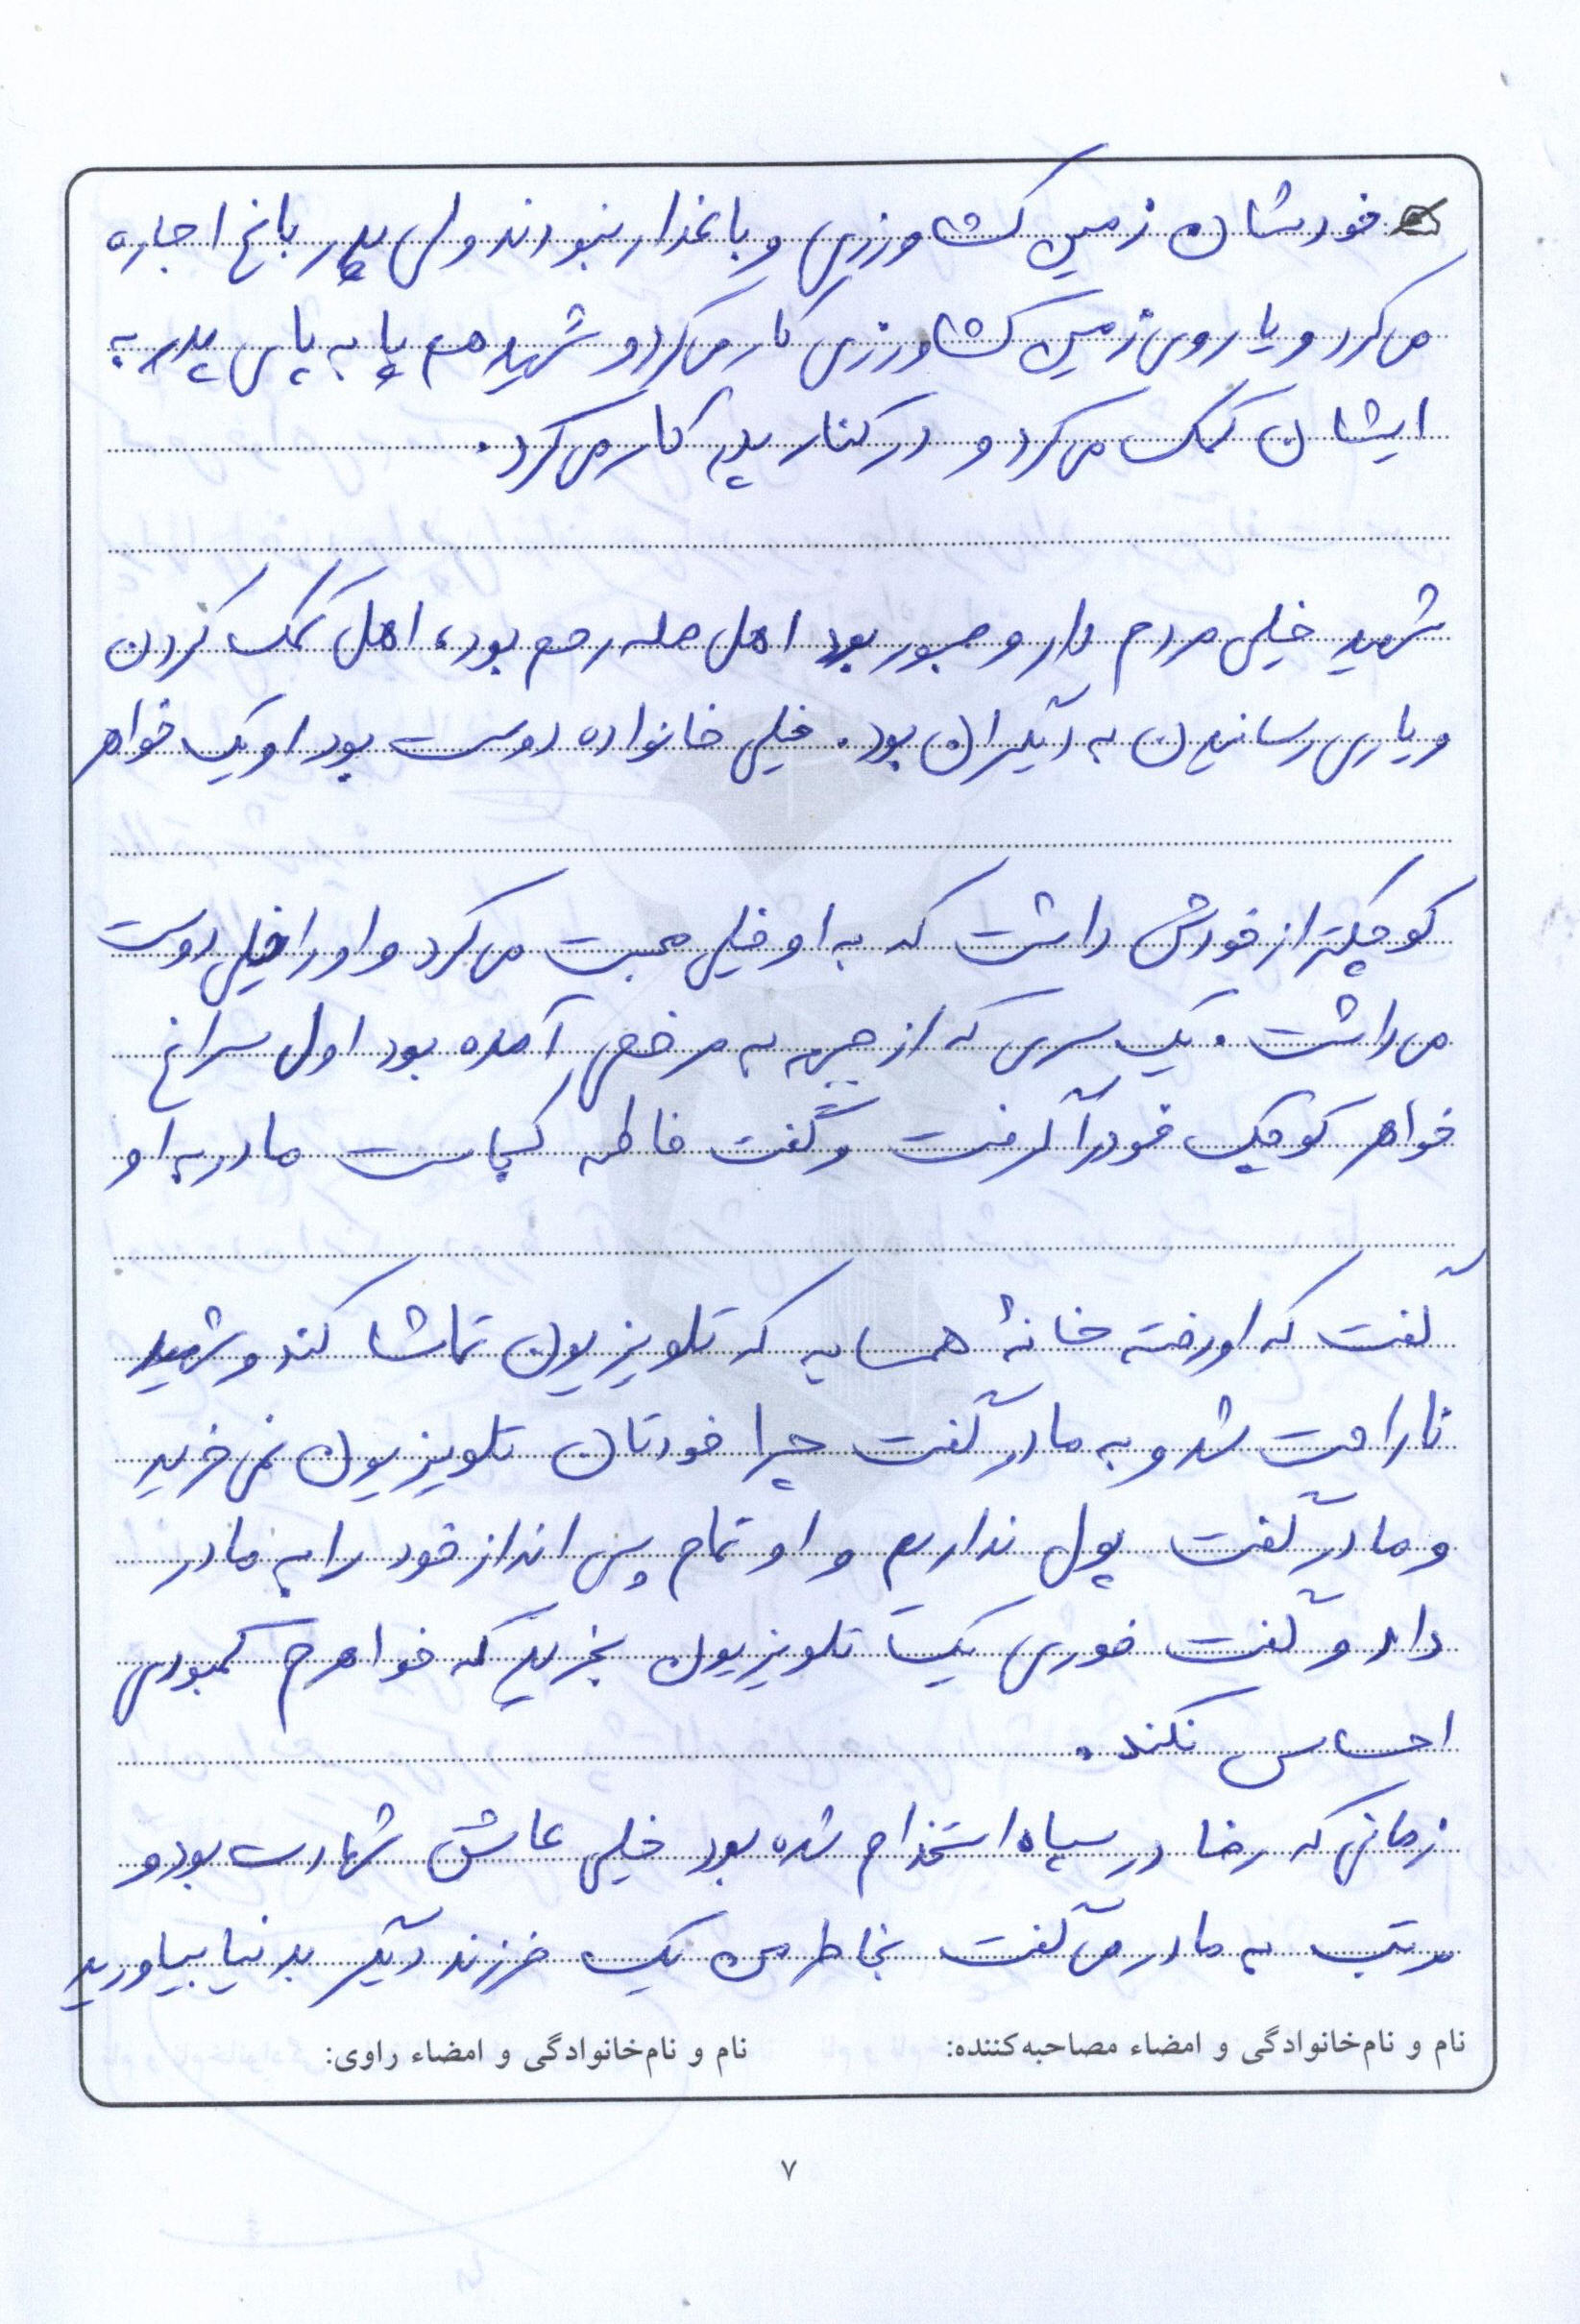 خودشان زمین کشاورزی و باغدار نبودند ولی پدر باغ اجاره
می‌کرد و یا روی زمین کشاورزی کار می‌کرد و شهید هم پا به پای پدر به
ایشان کمک می‌کرد و در کنار پدر کار می‌کرد.
شهید خیلی مردم دار و صبور بود اهل صله رحم بود، اهل کمک کردن
و یاری رساندن به دیگران بود. خیلی خانواده دوست بود او یک خواهر
کوچکتر از خودش داشت که به او خیلی محبت می‌کرد و او را خیلی دوست
می‌داشت. یک سری که از جبهه به مرخصی آمده بود اول سراغ
خواهر کوچک خود را گرفت و گفت فاطمه کجاست مادر به او
گفت که او رفته خانهٔ همسایه که تلویزیون تماشا کند و شهید
ناراحت شد و به مادر گفت چرا خودتان تلویزیون نمی‌خرید
و مادر گفت پول نداریم و او تمام پس انداز خود را به مادر
داد و گفت فوری یک تلویزیون بخرید که خواهرم کمبودی
احساس نکند.
زمانی که رضا در سپاه استخدام شده بود خیلی عاشق شهادت بود و
مرتب به مادر می‌گفت بخاطر من یک فرزند دیگر بدنیا بیاورید
نام و نام‌خانوادگی و امضاء مصاحبه‌کننده: نام و نام‌خانوادگی و امضاء راوی:
۷